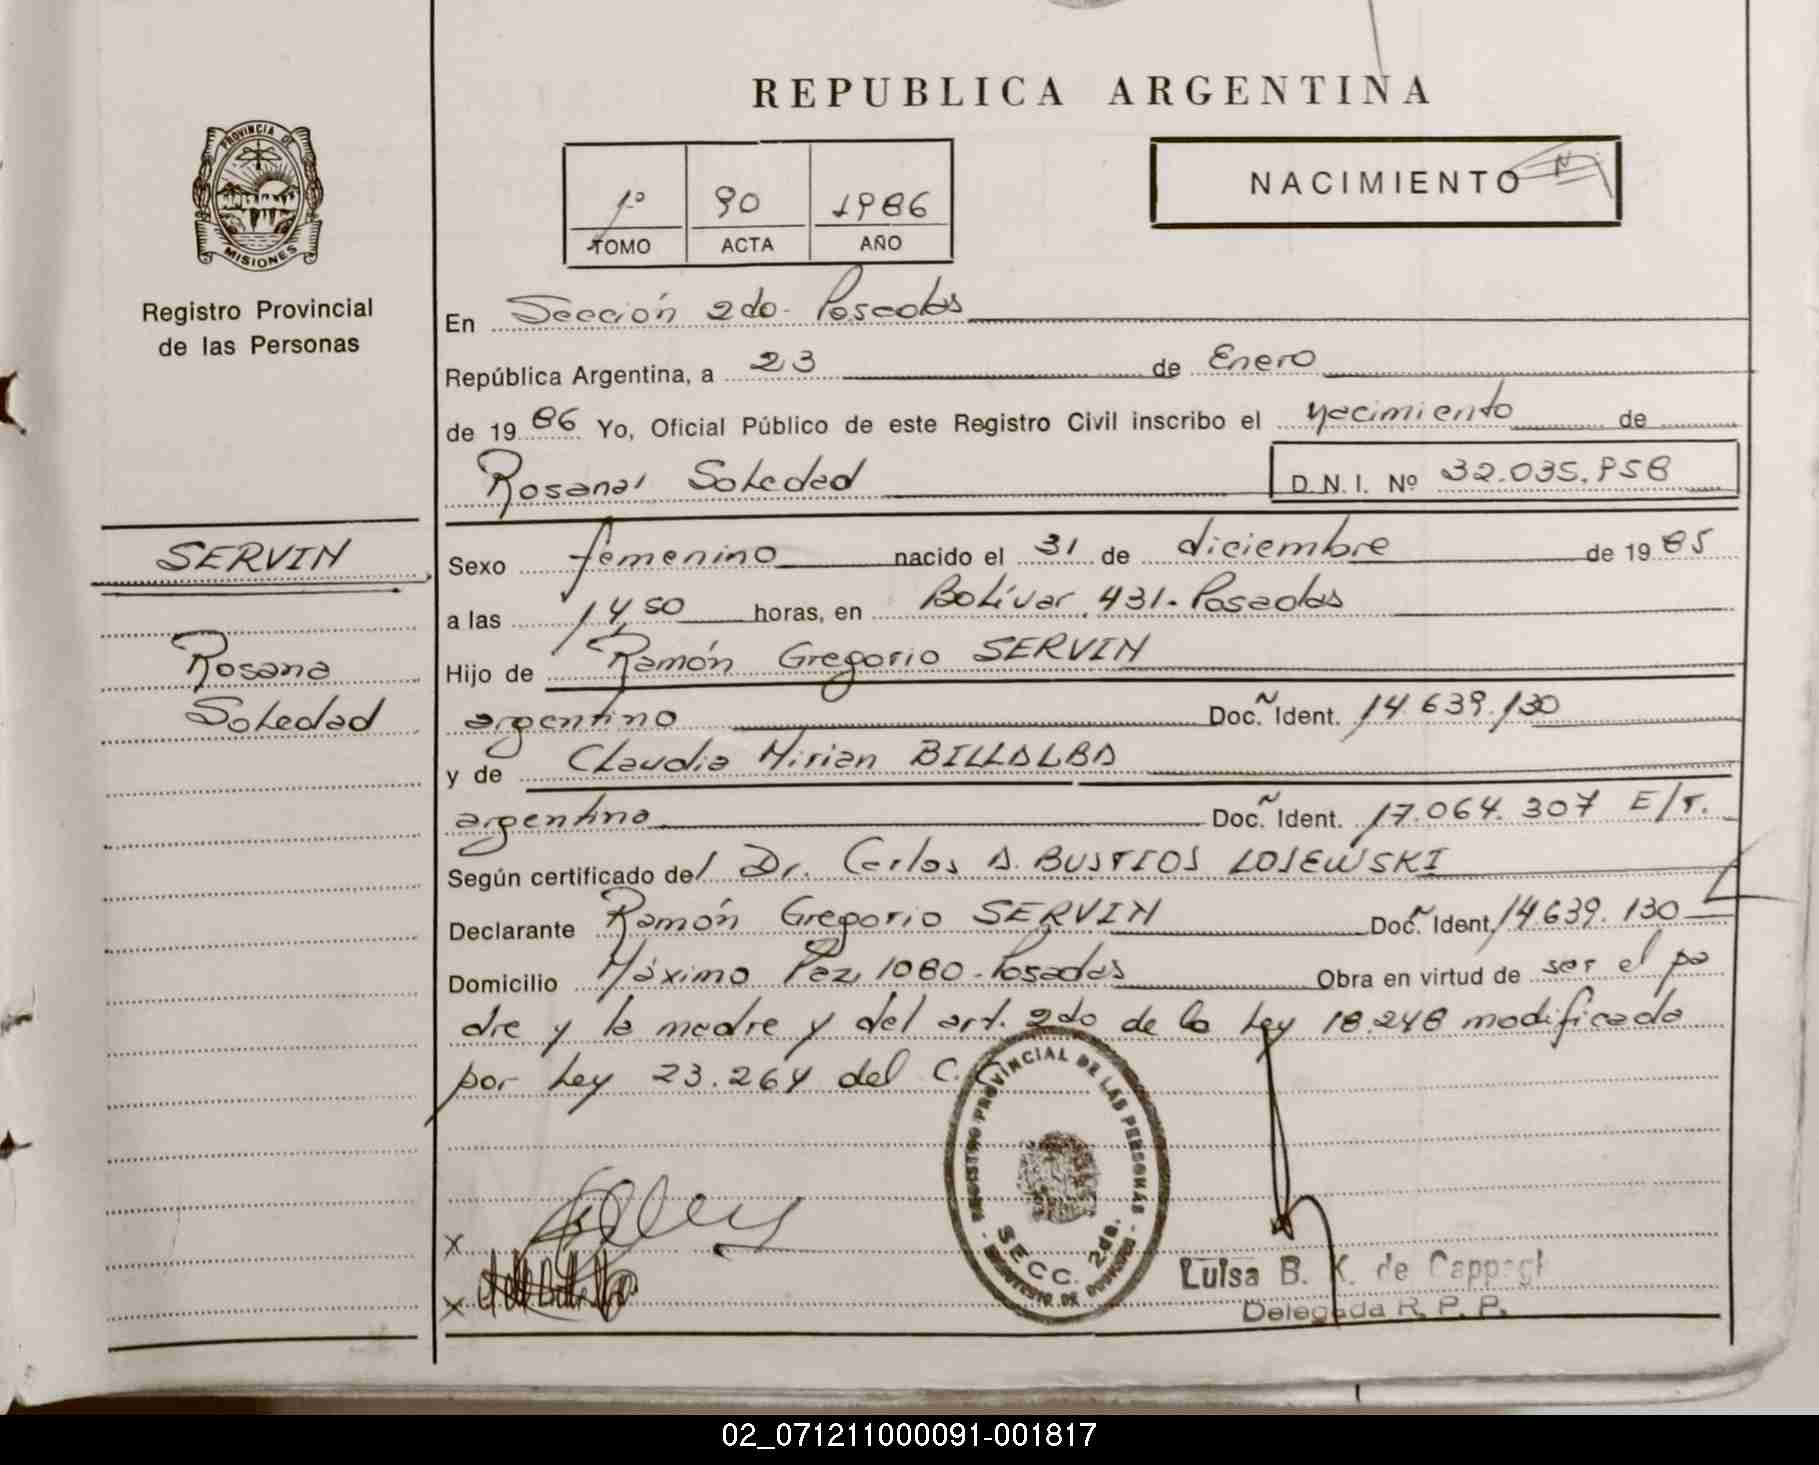 REPUBLICA ARGENTINA
PROVINCIA DE
MISIONES
Registro Provincial
de las Personas
1º 90 1986
TOMO ACTA AÑO
NACIMIENTO
En Sección 2da. Posadas
República Argentina, a 23 de Enero
de 19 86 Yo, Oficial Público de este Registro Civil inscribo el nacimiento de
Rosana Soledad D.N.I. Nº 32.035.958
SERVIN
Rosana
Soledad
Sexo femenino nacido el 31 de diciembre de 19 85
a las 14,50 horas, en Bolívar 431. Posadas
Hijo de Ramón Gregorio SERVIN
argentino Doc. Ident. 14.639.130
y de Claudia Mirian BILLALBA
argentina Doc. Ident. 17.064.307 E/T.
Según certificado del Dr. Carlos A. BUSTIOS LOSEWSKI
Declarante Ramón Gregorio SERVIN Doc. Ident. 14.639.130
Domicilio Máximo Paz 1080 - Posadas Obra en virtud de ser el pa
dre y la madre y del art. 2do de la Ley 18.248 modificada
por Ley 23.264 del C.C.
REGISTRO PROVINCIAL DE LAS PERSONAS
SECC. 2da.
X
X
Luisa B. K. de
Delegada R. P. P.
02_071211000091-001817